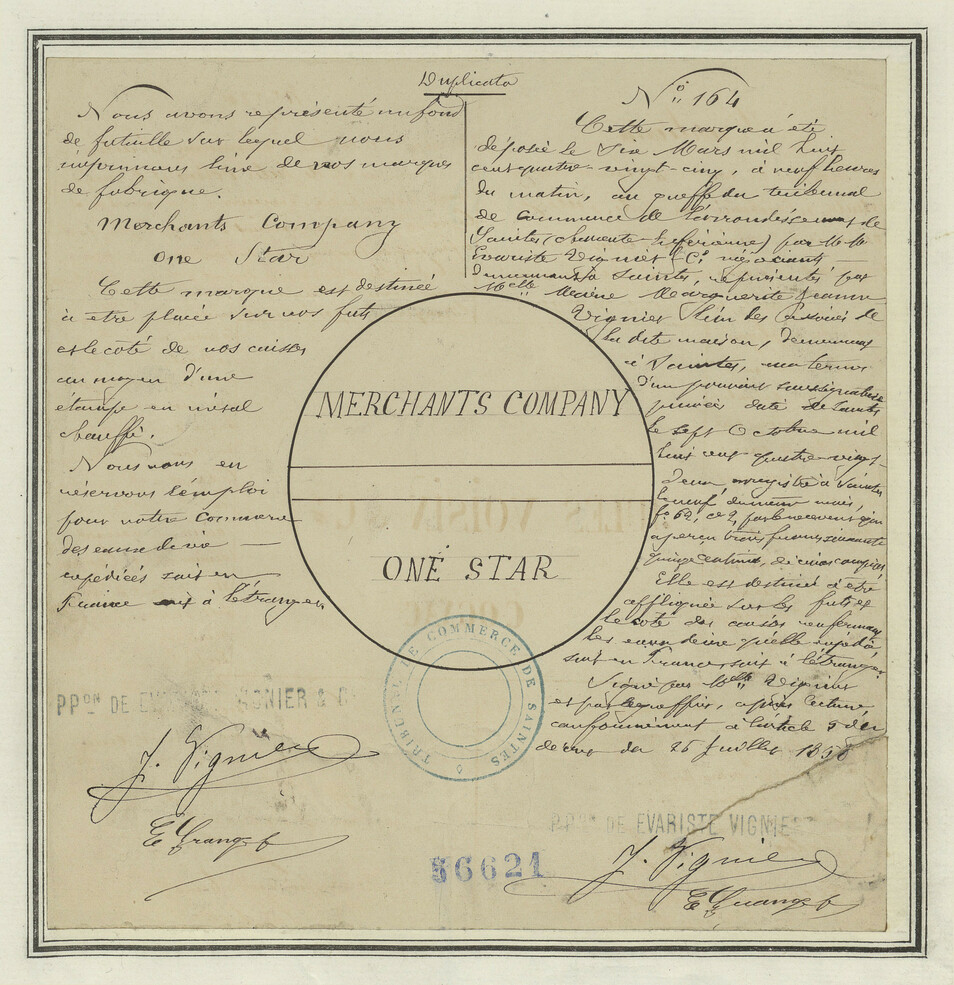 Duplicata
Nous avons représenté un fond
de futaille sur lequel nous
imprimons l'une de nos marques
de fabrique.
Merchants Company
One Star
Cette marque est destinée
à etre placée sur nos futs
et le coté de nos caisses
au moyen d'une
étampe en métal
chauffé.
Nous nous en
réservons l'emploi
pour notre commerce
des eaux de vie
expédiées soit en
France soit à l'étranger
PPon DE EVARISTE VIGNIER & C
J. Vignier
N° 164
Cette marque a été
déposée le Six Mars mil huit
cent quatre-vingt-cinq, à neuf heures
du matin, au greffe du tribunal
de commerce de l'arrondissement de
Saintes (Charente-Inférieure) par M.M.
Evariste Vignier & Cie négociants
demeurant à Saintes, représentés par
Melle Marie Marguerite Jeanne
Vignier l'un des associés de
la dite maison, demeurant
à Saintes, aux termes
d'un pouvoir sous signature
privée daté de Saintes
le sept Octobre mil
huit cent quatre-vingt-
deux enregistré à Saintes
le neuf du même mois,
fo 62, co 2, par le receveur qui
a perçu trois francs soixante
quinze centimes, décimes compris.
Elle est destinée à être
appliquée sur les futs et
le coté des caisses renfermant
les eaux de vie qu'elle expédie
soit en France, soit à l'étranger
Signé par Melle Vignier
et par le greffier, après lecture
conformément à l'article 5 du
décret du 26 Juillet 1858
MERCHANTS COMPANY
ONE STAR
TRIBUNAL DE COMMERCE DE SAINTES
PPon DE EVARISTE VIGNIER
J. Vignier
56621